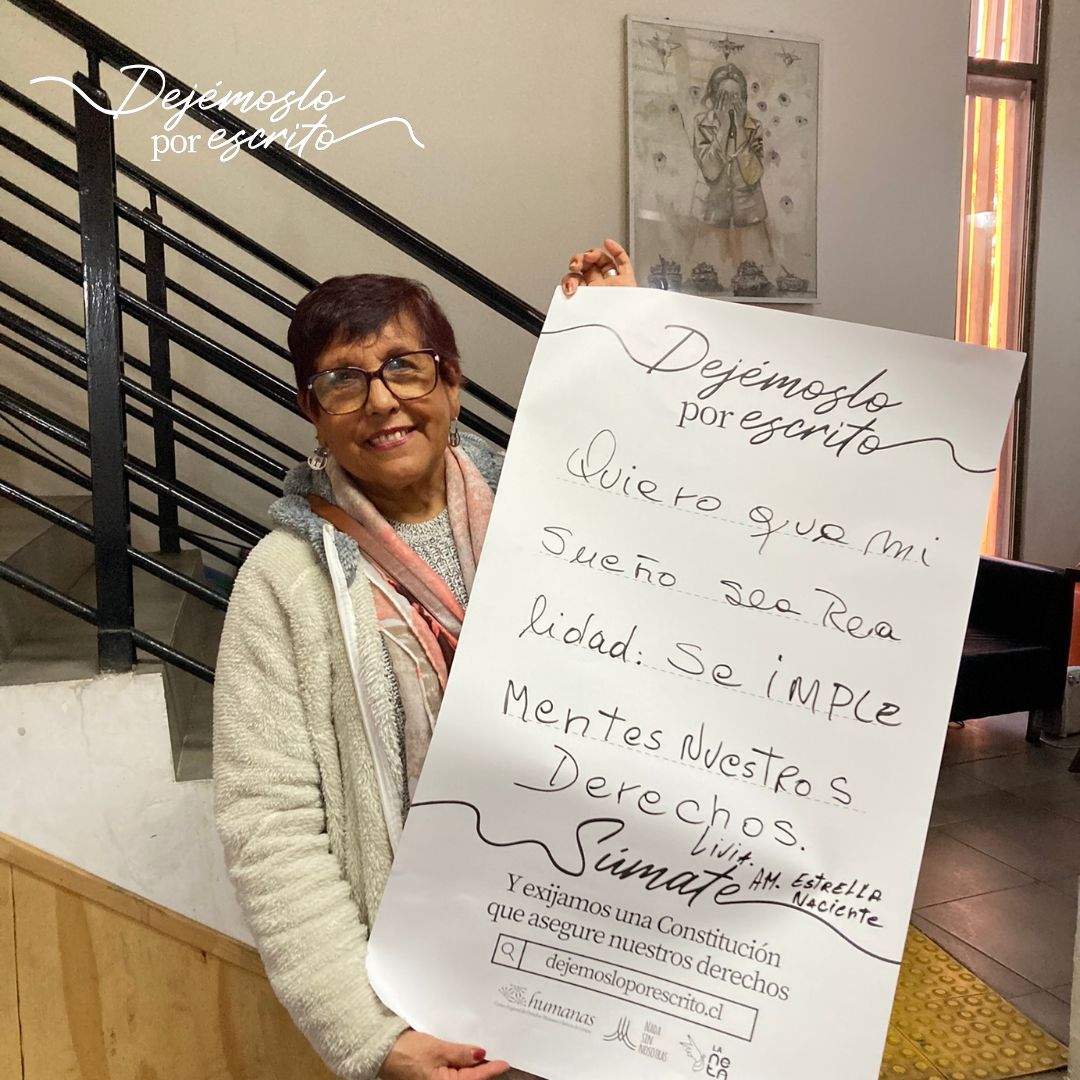 Dejémoslo
por escrito
Dejémoslo
por escrito
Quiero que mi
sueño sea Rea
lidad. Se iMPLe
Mentes NuestRos
Derechos.
Livia.
Súmate AM. EstRELLA
Naciente
Y exijamos una Constitución
que asegure nuestros derechos
dejemosloporescrito.cl
humanas
NADA
SIN
NOSOTRAS
LA
neta